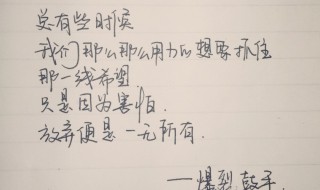 总有些时候
我们那么那么用力的想要抓住
那一线希望
只是因为害怕.
放弃便是一无所有.
——爆裂鼓手.